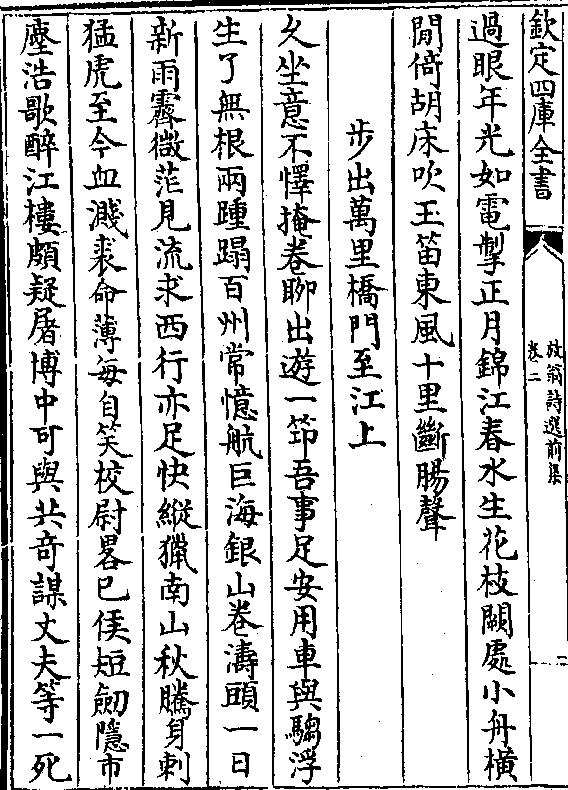 欽定四庫全書
放翁詩選前集
卷二
過眼年光如電掣正月錦江春水生花枝闕處小舟橫
閒倚胡床吹玉笛東風十里斷腸聲
步出萬里橋門至江上
久坐意不懌掩卷聊出遊一笻吾事足安用車與騶浮
生了無根兩踵蹋百州常憶航巨海銀山卷濤頭一日
新雨霽微茫見流求西行亦足快縱獵南山秋騰身刺
猛虎至今血濺裘命薄每自笑校尉畧已侯短劒隱市
塵浩歌醉江樓頗疑屠博中可與共奇謀丈夫等一死